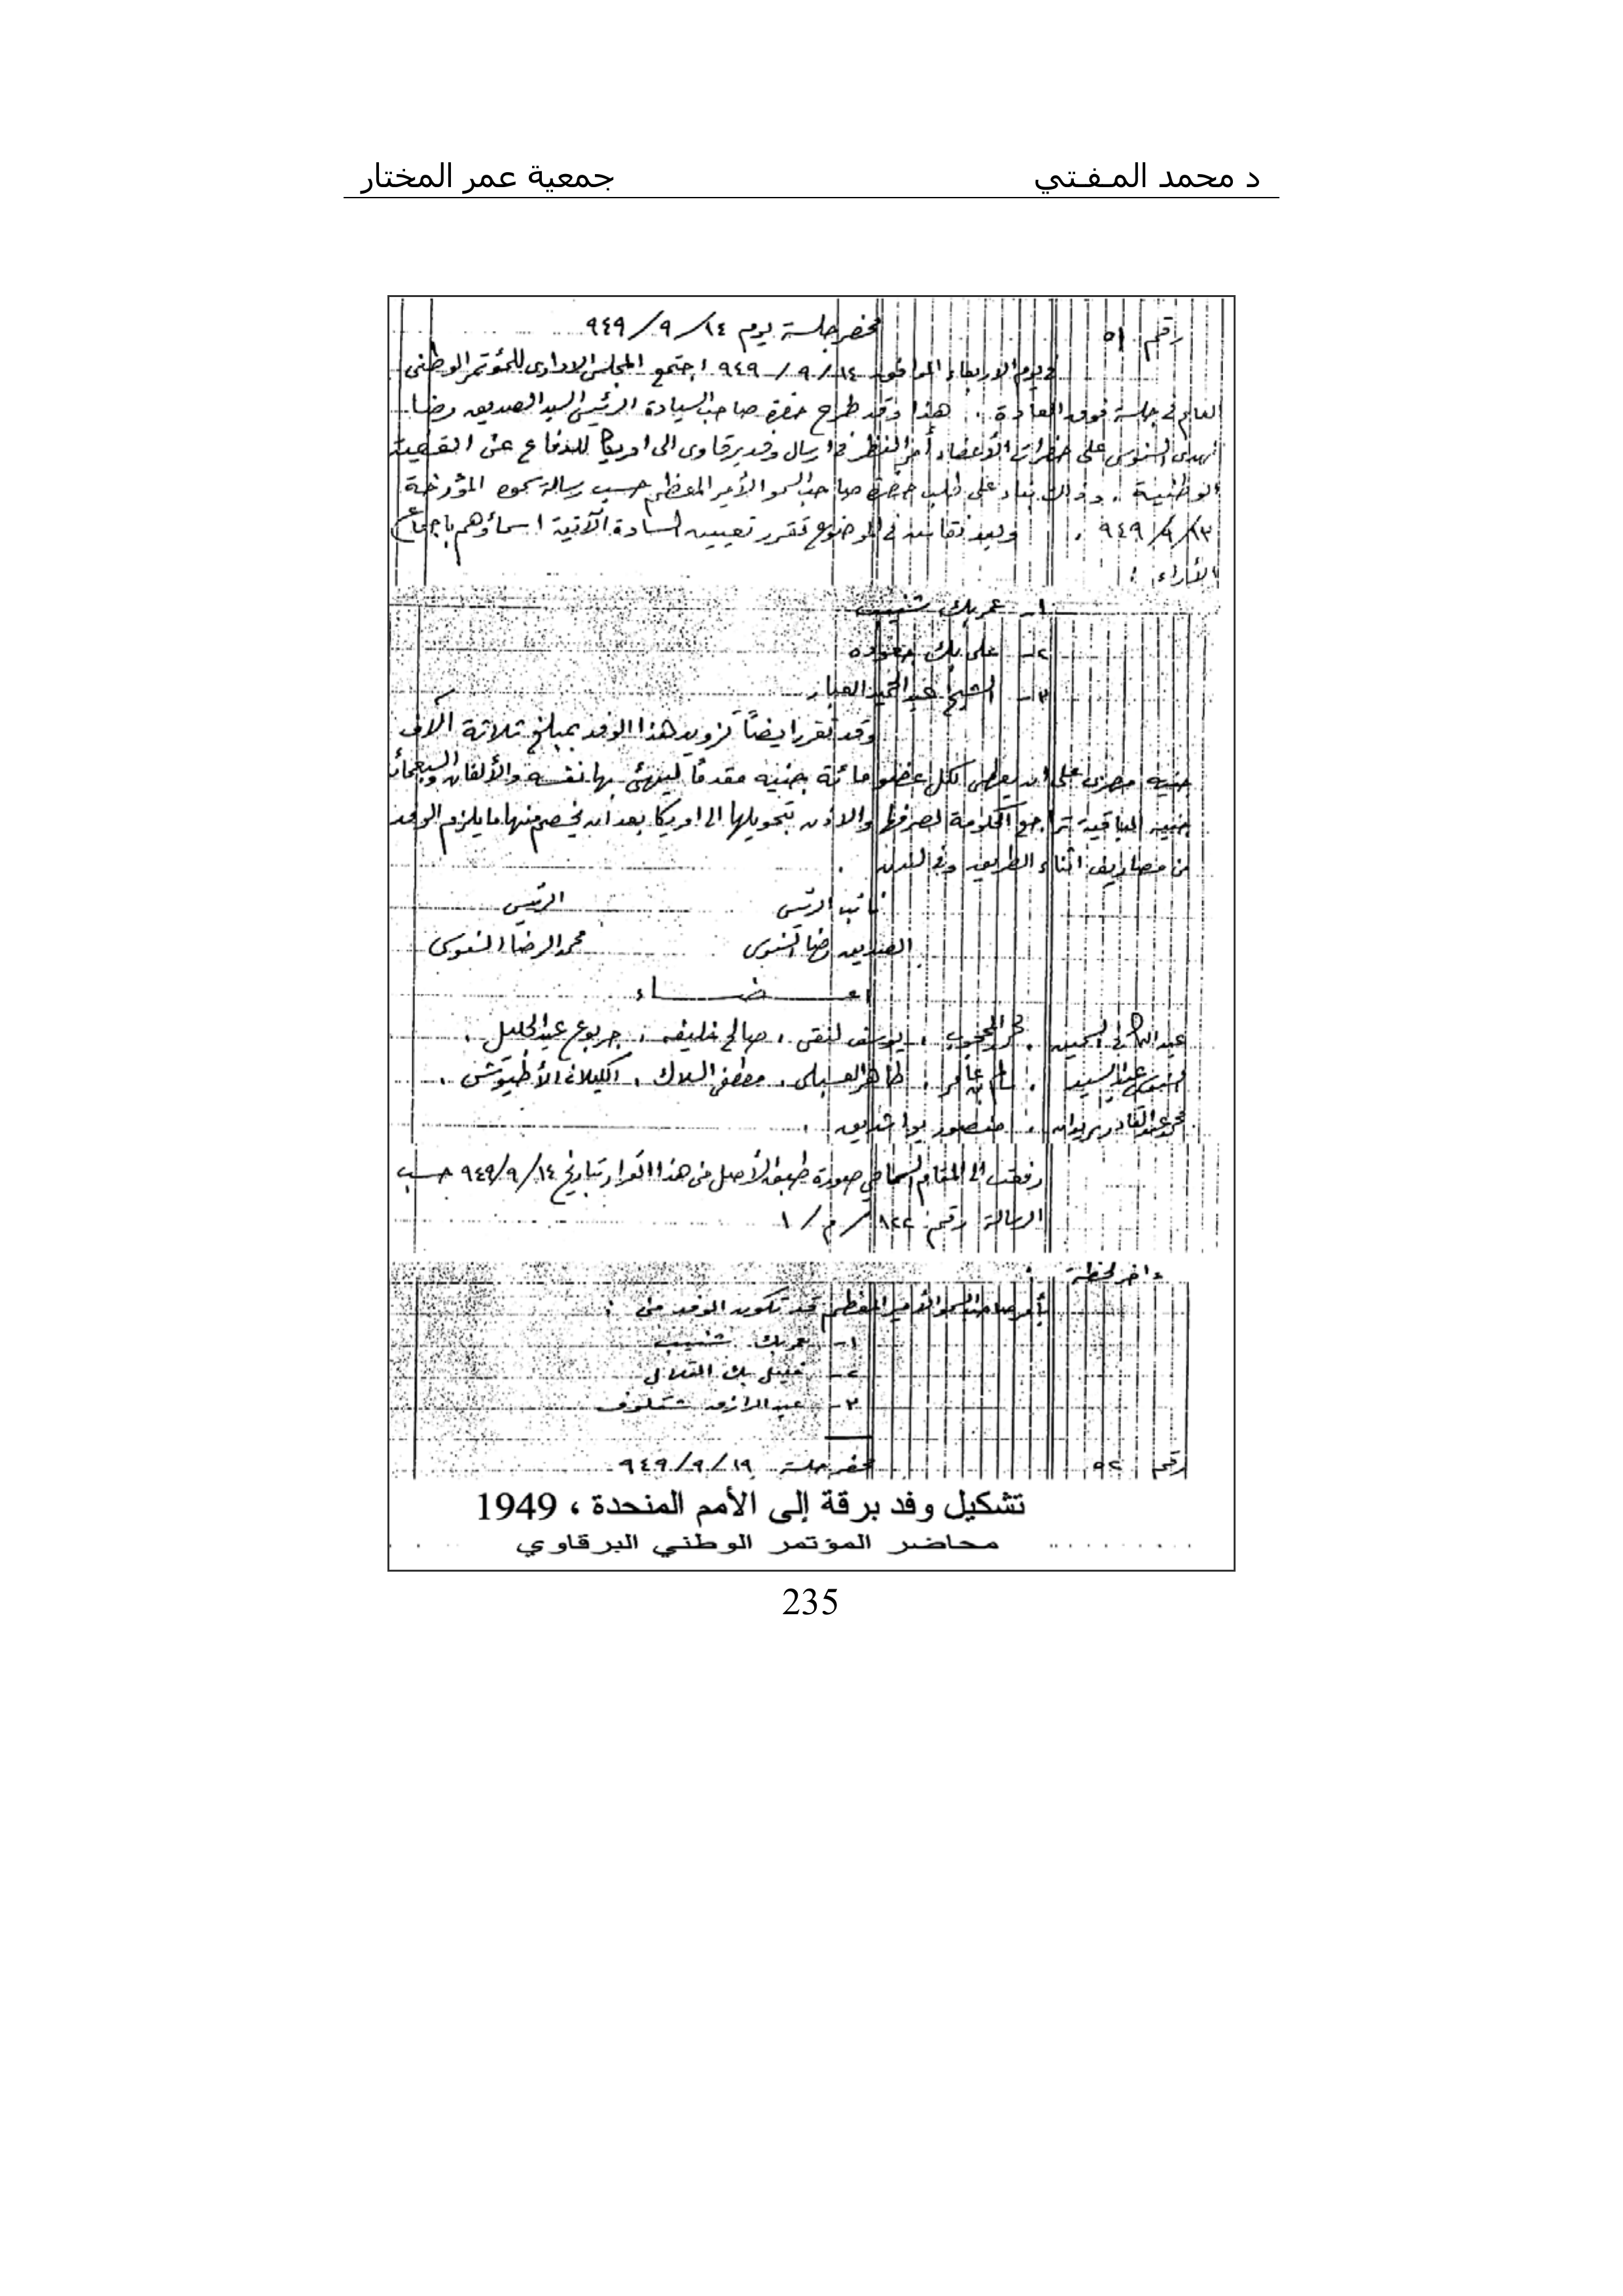 د محمد المـفـتي
جمعية عمر المختار
رقم ٥١
محضر جلسة يوم ١٤/٩/٩٤٩
في يوم الاربعاء الموافق ١٤/٩/٩٤٩ اجتمع المجلس الادارى للمؤتمر الوطنى
العام في جلسة فوق العادة . هذا وقد طرح حضرة صاحب السيادة الرئيس السيد الصديق رضا
المهدى السنوسى على حضرات الأعضاء أمر النظر في ارسال وفد برقاوى الى امريكا للدفاع عن القضية
الوطنية . وذلك بناء على طلب حضرة صاحب السمو الأمير المعظم حسب رسالة سموه المؤرخة
١٣/٩/٩٤٩ . وبعد نقاش في الموضوع تقرر تعيين السادة الآتية اسماؤهم باجماع
الآراء :
١- عمر بك شنيب
٢- على بك
٣- الشيخ عبد الحميد العبار
وقد تقرر ايضاً تزويد هذا الوفد بمبلغ ثلاثة آلاف
جنيه مصرى على ان يعطى لكل عضو مائة جنيه مقدمًا ليهئ بها نفسه والألفان والسبعمائة
جنيه الباقية تراجع الحكومة لصرفها والاذن بتحويلها الى امريكا بعد ان يخصم منها ما يلزم الوفد
من مصاريف اثناء الطريق وفي لندن .
نائب الرئيس
الرئيس
الصديق رضا السنوسى
محمد الرضا السنوسى
اعـــضـــاء
يوسف لنقى ، صالح خليفه ، جربوع عبد الجليل ،
طاهر العسبلى ، مصطفى السلاك ، الكيلانى الأطيوش ،
منصور بوا شديق .
رفعت الى المقام السامى صورة طبق الأصل من هذا القرار بتاريخ ١٤/٩/٩٤٩ حسب
الرسالة رقم ٨٢٢/م/١
ملاحظة :
بأمر صاحب السمو الأمير المعظم قد تكون الوفد من :
١- عمر بك شنيب
٢- خليل بك القلال
٣- عبد الرازق شقلوف
رقم ٥٢
محضر جلسة ١٩/٩/٩٤٩
تشكيل وفد برقة إلى الأمم المتحدة ، 1949
محاضر المؤتمر الوطني البرقاوي
235